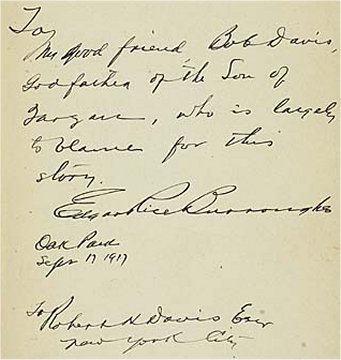 To
My good friend, Bob Davis,
Godfather of the Son of
Tarzan, who is largely
to blame for this
story.
Edgar Rice Burroughs
Oak Park
Sept 17 1917
To Robert H Davis Esq
New York City